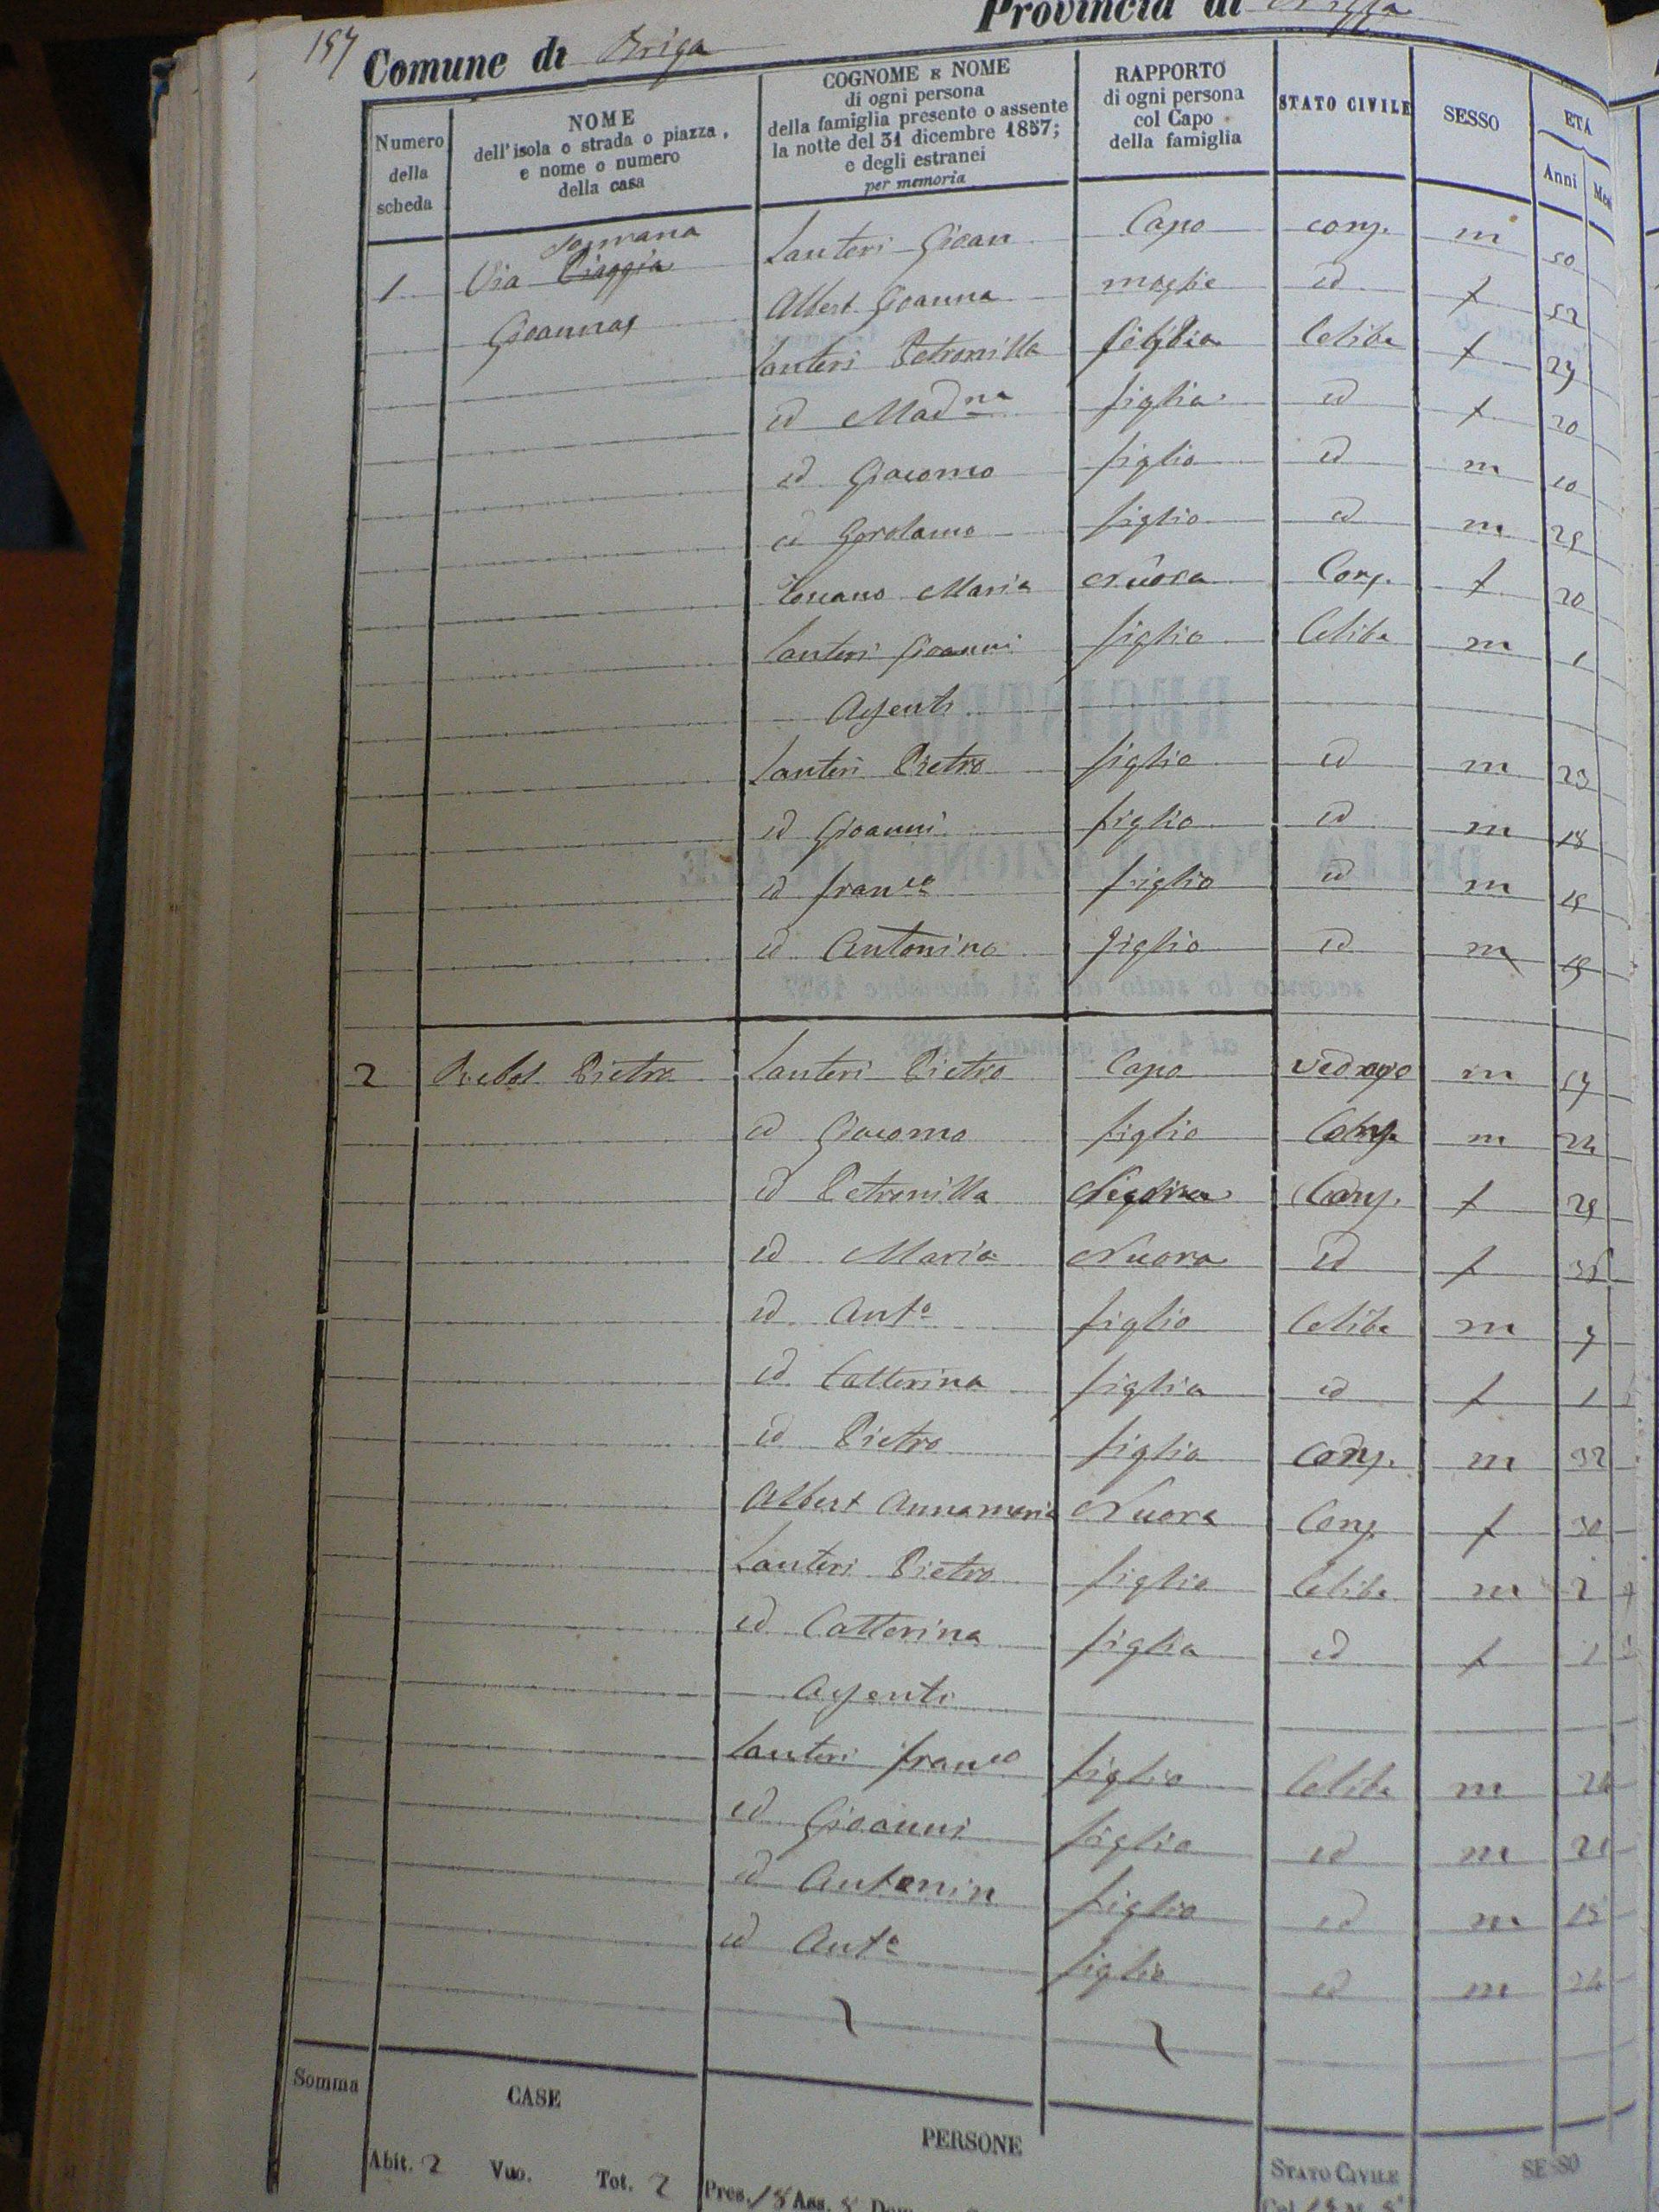 157 Comune di Briga Provincia di Nizza
Numero della scheda
NOME dell'isola o strada o piazza, e nome o numero della casa
COGNOME E NOME di ogni persona della famiglia presente o assente la notte del 31 dicembre 1857; e degli estranei per memoria
RAPPORTO di ogni persona col Capo della famiglia
STATO CIVILE
SESSO
ETA
Anni Mesi
1 Via Piaggia Lanteri Gioan Capo conj. m 50
Albert Gioanna moglie id f 52
Lanteri Petronilla figlia Celibe f
id Mad.na figlia id f 20
id Giacomo figlio id m 10
id Gerolamo figlio id m 25
Maria Nuora Conj. f 20
Lanteri Gioanni figlio Celibe m 1
Assenti
Lanteri Pietro figlio id m 23
id Gioanni figlio id m 18
id Fran.co figlio id m
id Antonino figlio id m
2 Rebol Pietro Lanteri Pietro Capo vedovo m
id Giacomo figlio Conj. m
id Petronilla Conj. f
id Maria Nuora id f
id Ant.o figlio Celibe m
id Catterina figlia id f 1
id Pietro figlio Conj. m 32
Albert Annamaria Nuora Conj. f 30
Lanteri Pietro figlio Celibe m 2
id Catterina figlia id f 1
Assenti
Lanteri Fran.co figlio Celibe m
id Gioanni figlio id m 21
id Antonin figlio id m 15
id Ant.o figlio id m
Somma CASE PERSONE STATO CIVILE SESSO
Abit. 2 Vuo. Tot. 2 Pres. 18 Ass. 8